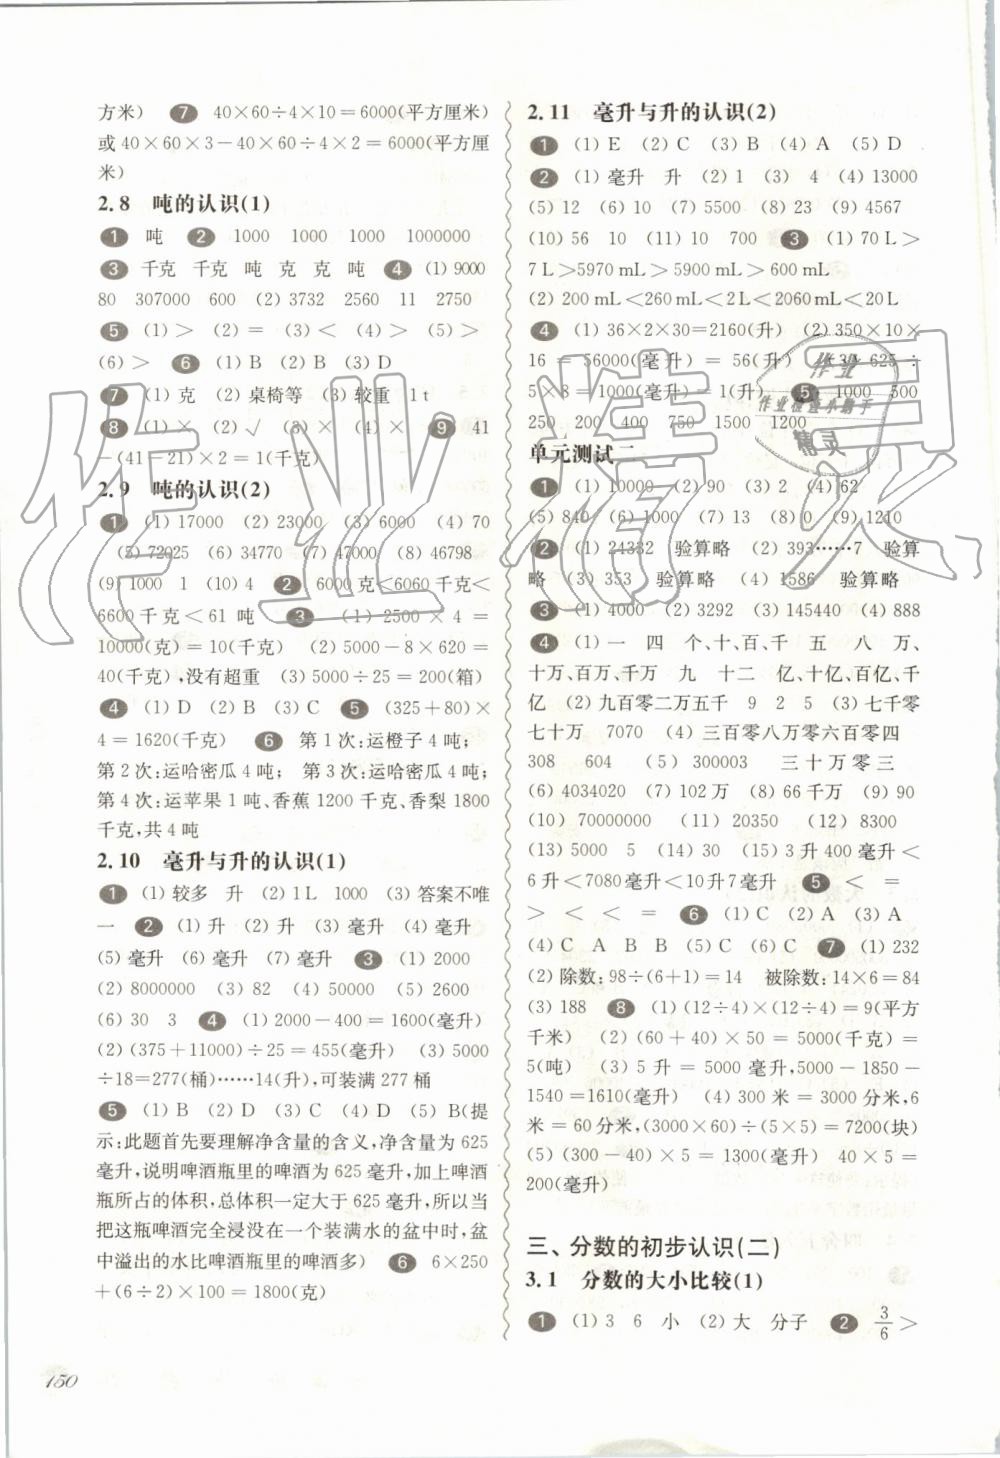 方米) 7 40×60÷4×10=6000(平方厘米)
或 40×60×3-40×60÷4×2=6000(平方厘
米)
2.8 吨的认识(1)
1 吨 2 1000 1000 1000 1000000
3 千克 千克 吨 克 克 吨 4 (1) 9000
80 307000 600 (2) 3732 2560 11 2750
5 (1) > (2) = (3) < (4) > (5) >
(6) > 6 (1) B (2) B (3) D
7 (1) 克 (2) 桌椅等 (3) 较重 1 t
8 (1) × (2) √ (3) × (4) × 9 41
-(41-21)×2=1(千克)
2.9 吨的认识(2)
1 (1) 17000 (2) 23000 (3) 6000 (4) 70
(5) 72025 (6) 34770 (7) 47000 (8) 46798
(9) 1000 1 (10) 4 2 6000克<6060千克<
6600千克<61吨 3 (1) 2500×4=
10000(克)=10(千克) (2) 5000-8×620=
40(千克),没有超重 (3) 5000÷25=200(箱)
4 (1) D (2) B (3) C 5 (325+80)×
4=1620(千克) 6 第1次:运橙子4吨;
第2次:运哈密瓜4吨; 第3次:运哈密瓜4吨;
第4次:运苹果1吨、香蕉1200千克、香梨1800
千克,共4吨
2.10 毫升与升的认识(1)
1 (1) 较多 升 (2) 1 L 1000 (3) 答案不唯
一 2 (1) 升 (2) 升 (3) 毫升 (4) 毫升
(5) 毫升 (6) 毫升 (7) 毫升 3 (1) 2000
(2) 8000000 (3) 82 (4) 50000 (5) 2600
(6) 30 3 4 (1) 2000-400=1600(毫升)
(2) (375+11000)÷25=455(毫升) (3) 5000
÷18=277(桶)……14(升),可装满277桶
5 (1) B (2) D (3) C (4) D (5) B(提
示:此题首先要理解净含量的含义,净含量为625
毫升,说明啤酒瓶里的啤酒为625毫升,加上啤酒
瓶所占的体积,总体积一定大于625毫升,所以当
把这瓶啤酒完全浸没在一个装满水的盆中时,盆
中溢出的水比啤酒瓶里的啤酒多) 6 6×250
+(6÷2)×100=1800(克)
150
2.11 毫升与升的认识(2)
1 (1) E (2) C (3) B (4) A (5) D
2 (1) 毫升 升 (2) 1 (3) 4 (4) 13000
(5) 12 (6) 10 (7) 5500 (8) 23 (9) 4567
(10) 56 10 (11) 10 700 3 (1) 70 L>
7 L>5970 mL>5900 mL>600 mL
(2) 200 mL<260 mL<2 L<2060 mL<20 L
4 (1) 36×2×30=2160(升) (2) 350×10×
16=56000(毫升)=56(升) (3) 625÷
5×8=1000(毫升)=1(升) 5 1000 500
250 200 400 750 1500 1200
单元测试二
1 (1) 10000 (2) 90 (3) 2 (4) 62
(5) 840 (6) 1000 (7) 13 (8) 0 (9) 1210
2 (1) 24332 验算略 (2) 393……7 验算
略 (3) 353 验算略 (4) 1586 验算略
3 (1) 4000 (2) 3292 (3) 145440 (4) 888
4 (1) 一 四 个、十、百、千 五 八 万、
十万、百万、千万 九 十二 亿、十亿、百亿、千
亿 (2) 九百零二万五千 9 2 5 (3) 七千零
七十万 7070 (4) 三百零八万零六百零四
308 604 (5) 300003 三十万零三
(6) 4034020 (7) 102万 (8) 66千万 (9) 90
(10) 70000000 (11) 20350 (12) 8300
(13) 5000 5 (14) 30 (15) 3升400毫升<
6升<7080毫升<10升7毫升 5 < =
> < < = 6 (1) C (2) A (3) A
(4) C A B B (5) C (6) C 7 (1) 232
(2) 除数:98÷(6+1)=14 被除数:14×6=84
(3) 188 8 (1) (12÷4)×(12÷4)=9(平方
千米) (2) (60+40)×50=5000(千克)=
5(吨) (3) 5升=5000毫升,5000-1850-
1540=1610(毫升) (4) 300米=3000分米,6
米=60分米,(3000×60)÷(5×5)=7200(块)
(5) (300-40)×5=1300(毫升) 40×5=
200(毫升)
三、分数的初步认识(二)
3.1 分数的大小比较(1)
1 (1) 3 6 小 (2) 大 分子 2 3/6 >
作业
作业检查小助手
精灵
作业精灵